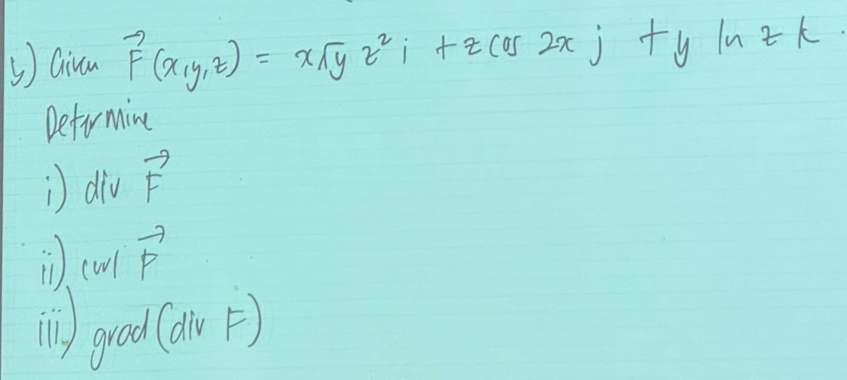 b) Given F⃗(x,y,z) = x√y z² i + z cos 2x j + y ln z k.
Determine
i) div F⃗
ii) curl F⃗
iii) grad (div F)